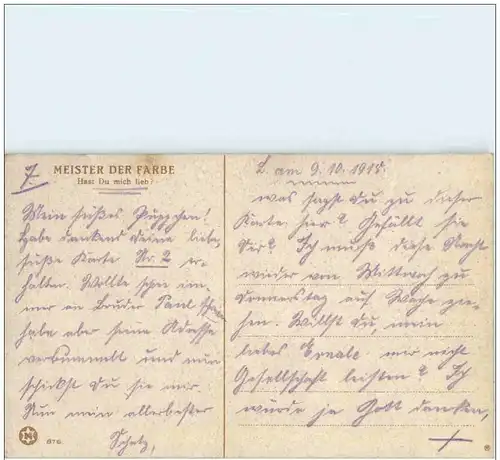 7
MEISTER DER FARBE
Hast Du mich lieb?
Mein süßes Püppchen!
Habe dankend Deine liebe,
süße Karte Nr. 2 er-
halten. Wollte schon im-
mer an Bruder Paul schreiben
habe aber seine Adresse
verbummelt und nun
schickst Du sie mir.
Nun mein allerbester
Schatz,
876.
L. am 9.10.1915.
was sagst Du zu dieser
Karte hier? Gefällt sie
Dir? Ich muß diese Nacht
wieder von Mittwoch zu
Donnerstag auf Wache zie-
hen. Willst Du, mein
liebes mir nicht
Gesellschaft leisten? Ich
würde ja Gott danken,
+